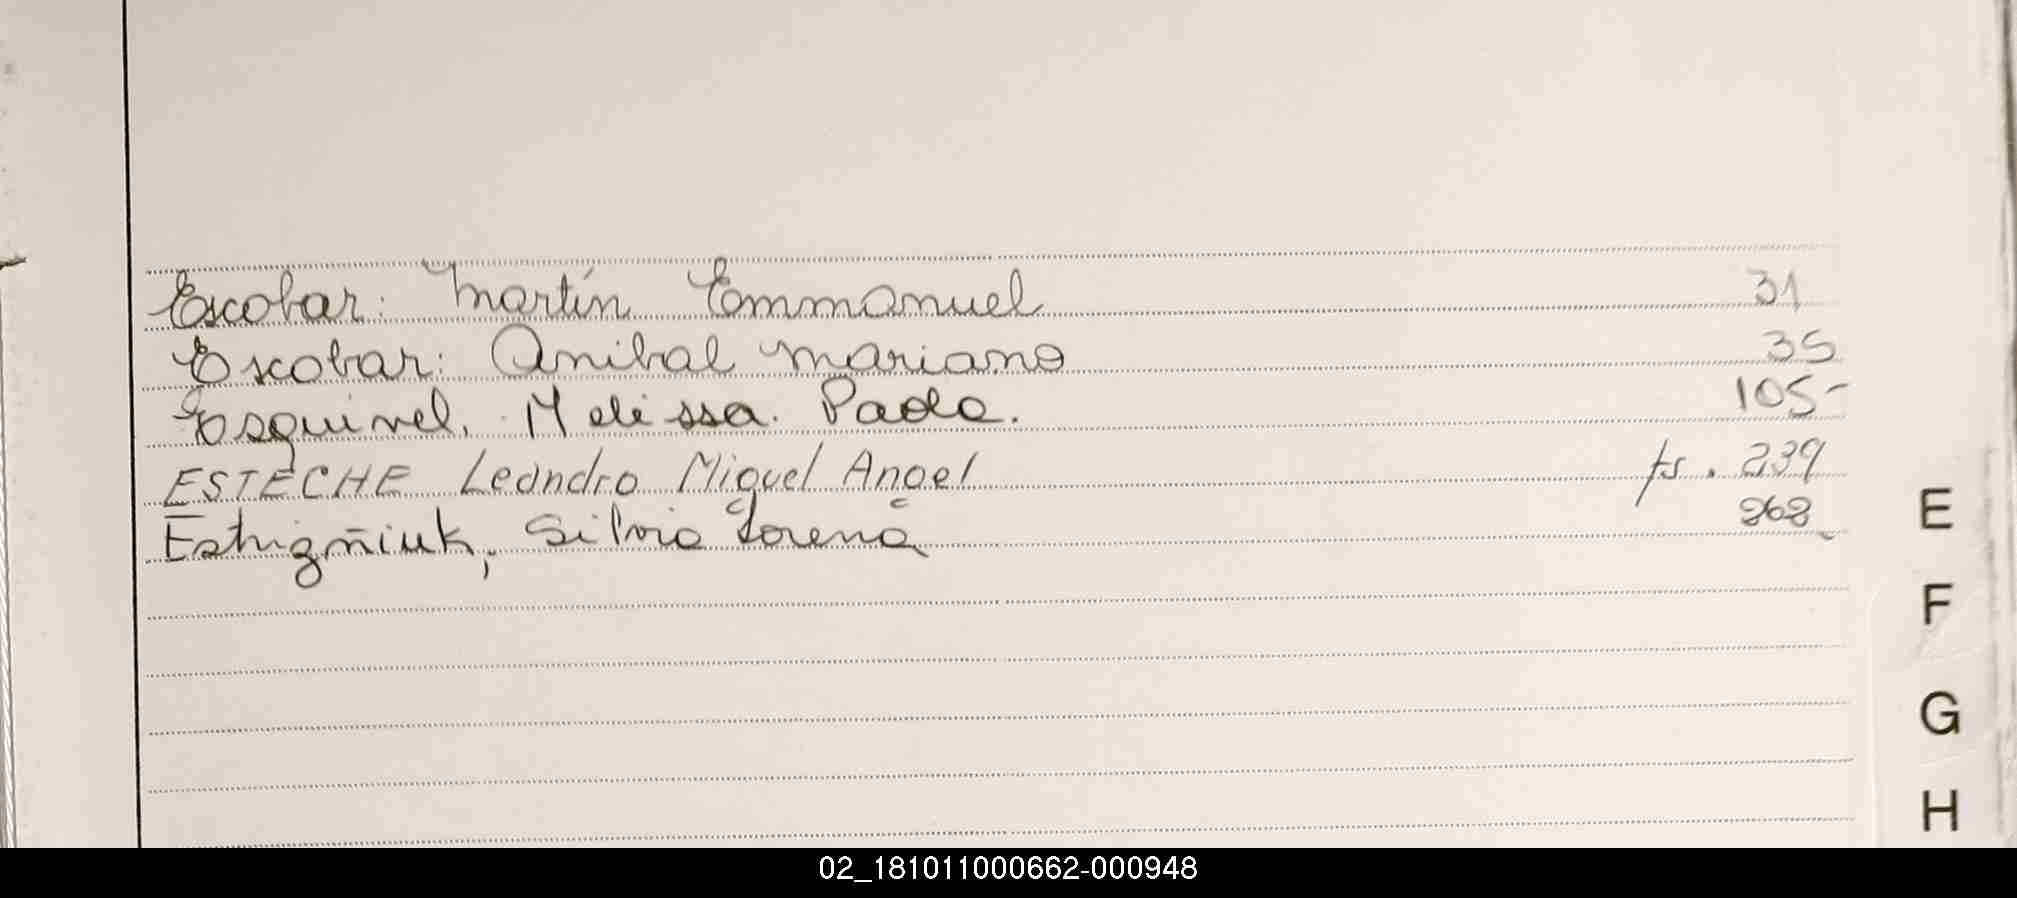 Escobar: Martín Emmanuel 31
Escobar: Anibal Mariano 35
Esquivel, Melissa. Paola. 105-
ESTECHE Leandro Miguel Angel fs. 239
Silvia Lorena 268
E
F
G
H
02_181011000662-000948